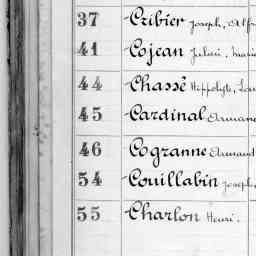 37 Cribier Joseph, Alfr
41 Cojean Julien, Marie
44 Chassé Hippolyte, Lou
45 Cardinal Armand
46 Cogranne Armand
54 Couillabin Joseph,
55 Charlon Henri.